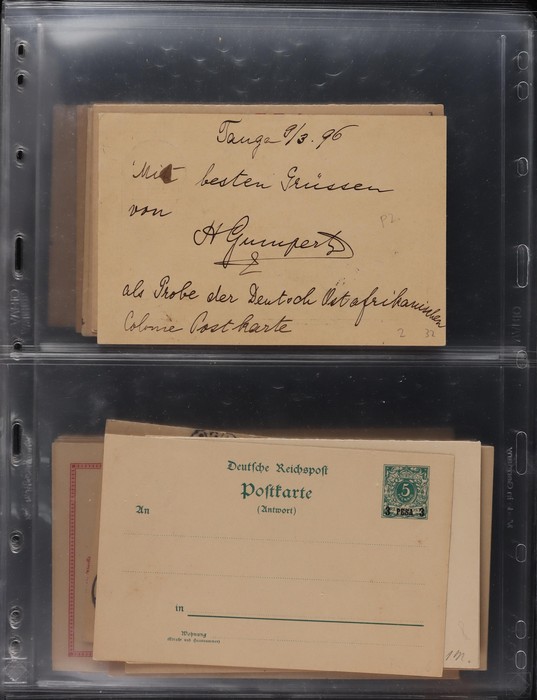 Tanga 9/3. 96
Mit besten Grüssen
von
H Gumpertz
als Probe der Deutsch Ostafrikanischen
Colonie Postkarte
P2.
2 32
Deutsche Reichspost
Postkarte
(Antwort)
An
5
3 PESA 3
in
Wohnung
(Straße und Hausnummer)